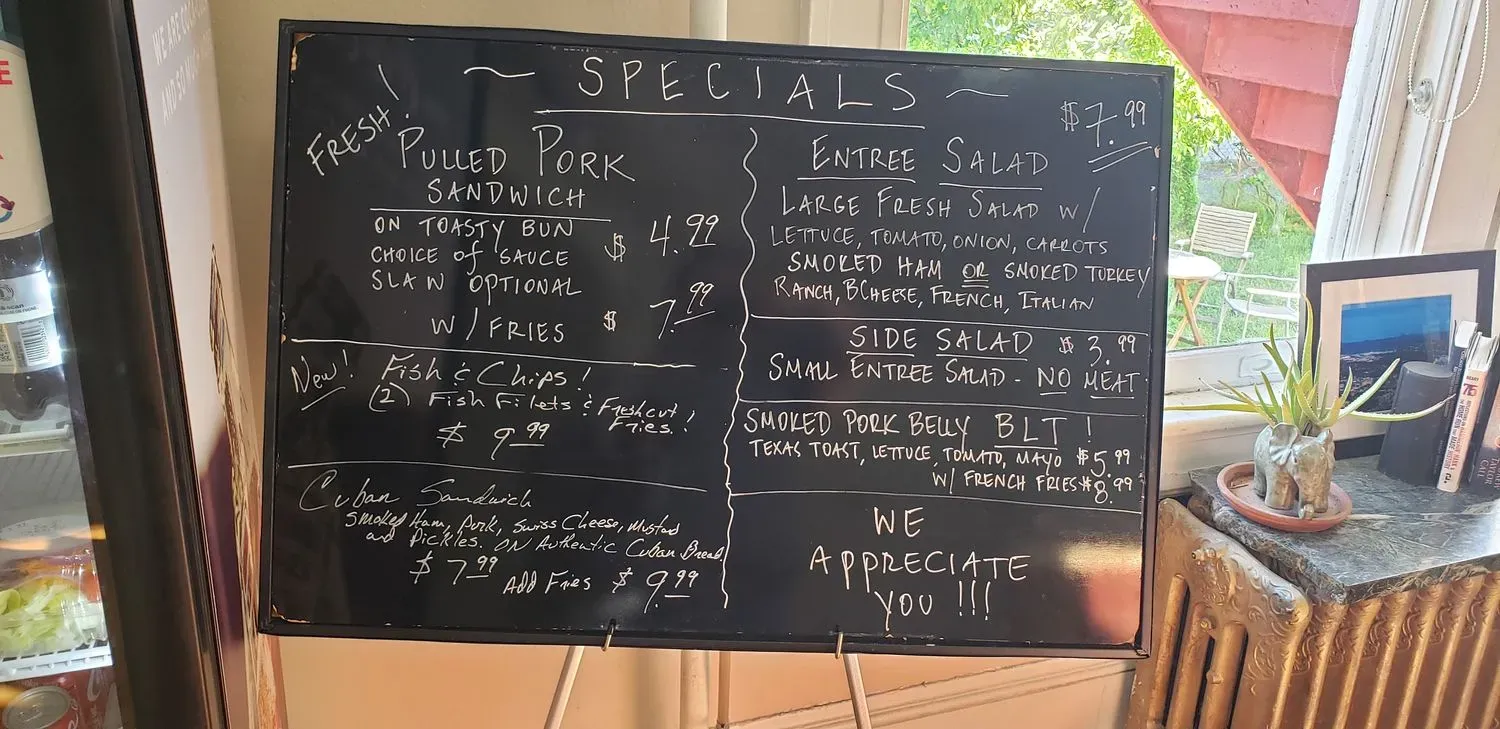 ~ SPECIALS ~
FRESH!
PULLED PORK
SANDWICH
ON TOASTY BUN
CHOICE of SAUCE $ 4.99
SLAW OPTIONAL
W/FRIES $ 7.99
New! Fish & Chips!
(2) Fish Filets & Fresh cut
Fries!
$ 9.99
Cuban Sandwich
Smoked Ham, Pork, Swiss Cheese, Mustard
and Pickles. ON Authentic Cuban Bread
$ 7.99 ADD Fries $ 9.99
$7.99
ENTREE SALAD
LARGE FRESH SALAD W/
LETTUCE, TOMATO, ONION, CARROTS
SMOKED HAM OR SMOKED TURKEY
RANCH, BCHEESE, FRENCH, ITALIAN
SIDE SALAD $ 3.99
SMALL ENTREE SALAD - NO MEAT
SMOKED PORK BELLY BLT !
TEXAS TOAST, LETTUCE, TOMATO, MAYO $5.99
W/ FRENCH FRIES $8.99
WE
APPRECIATE
YOU !!!